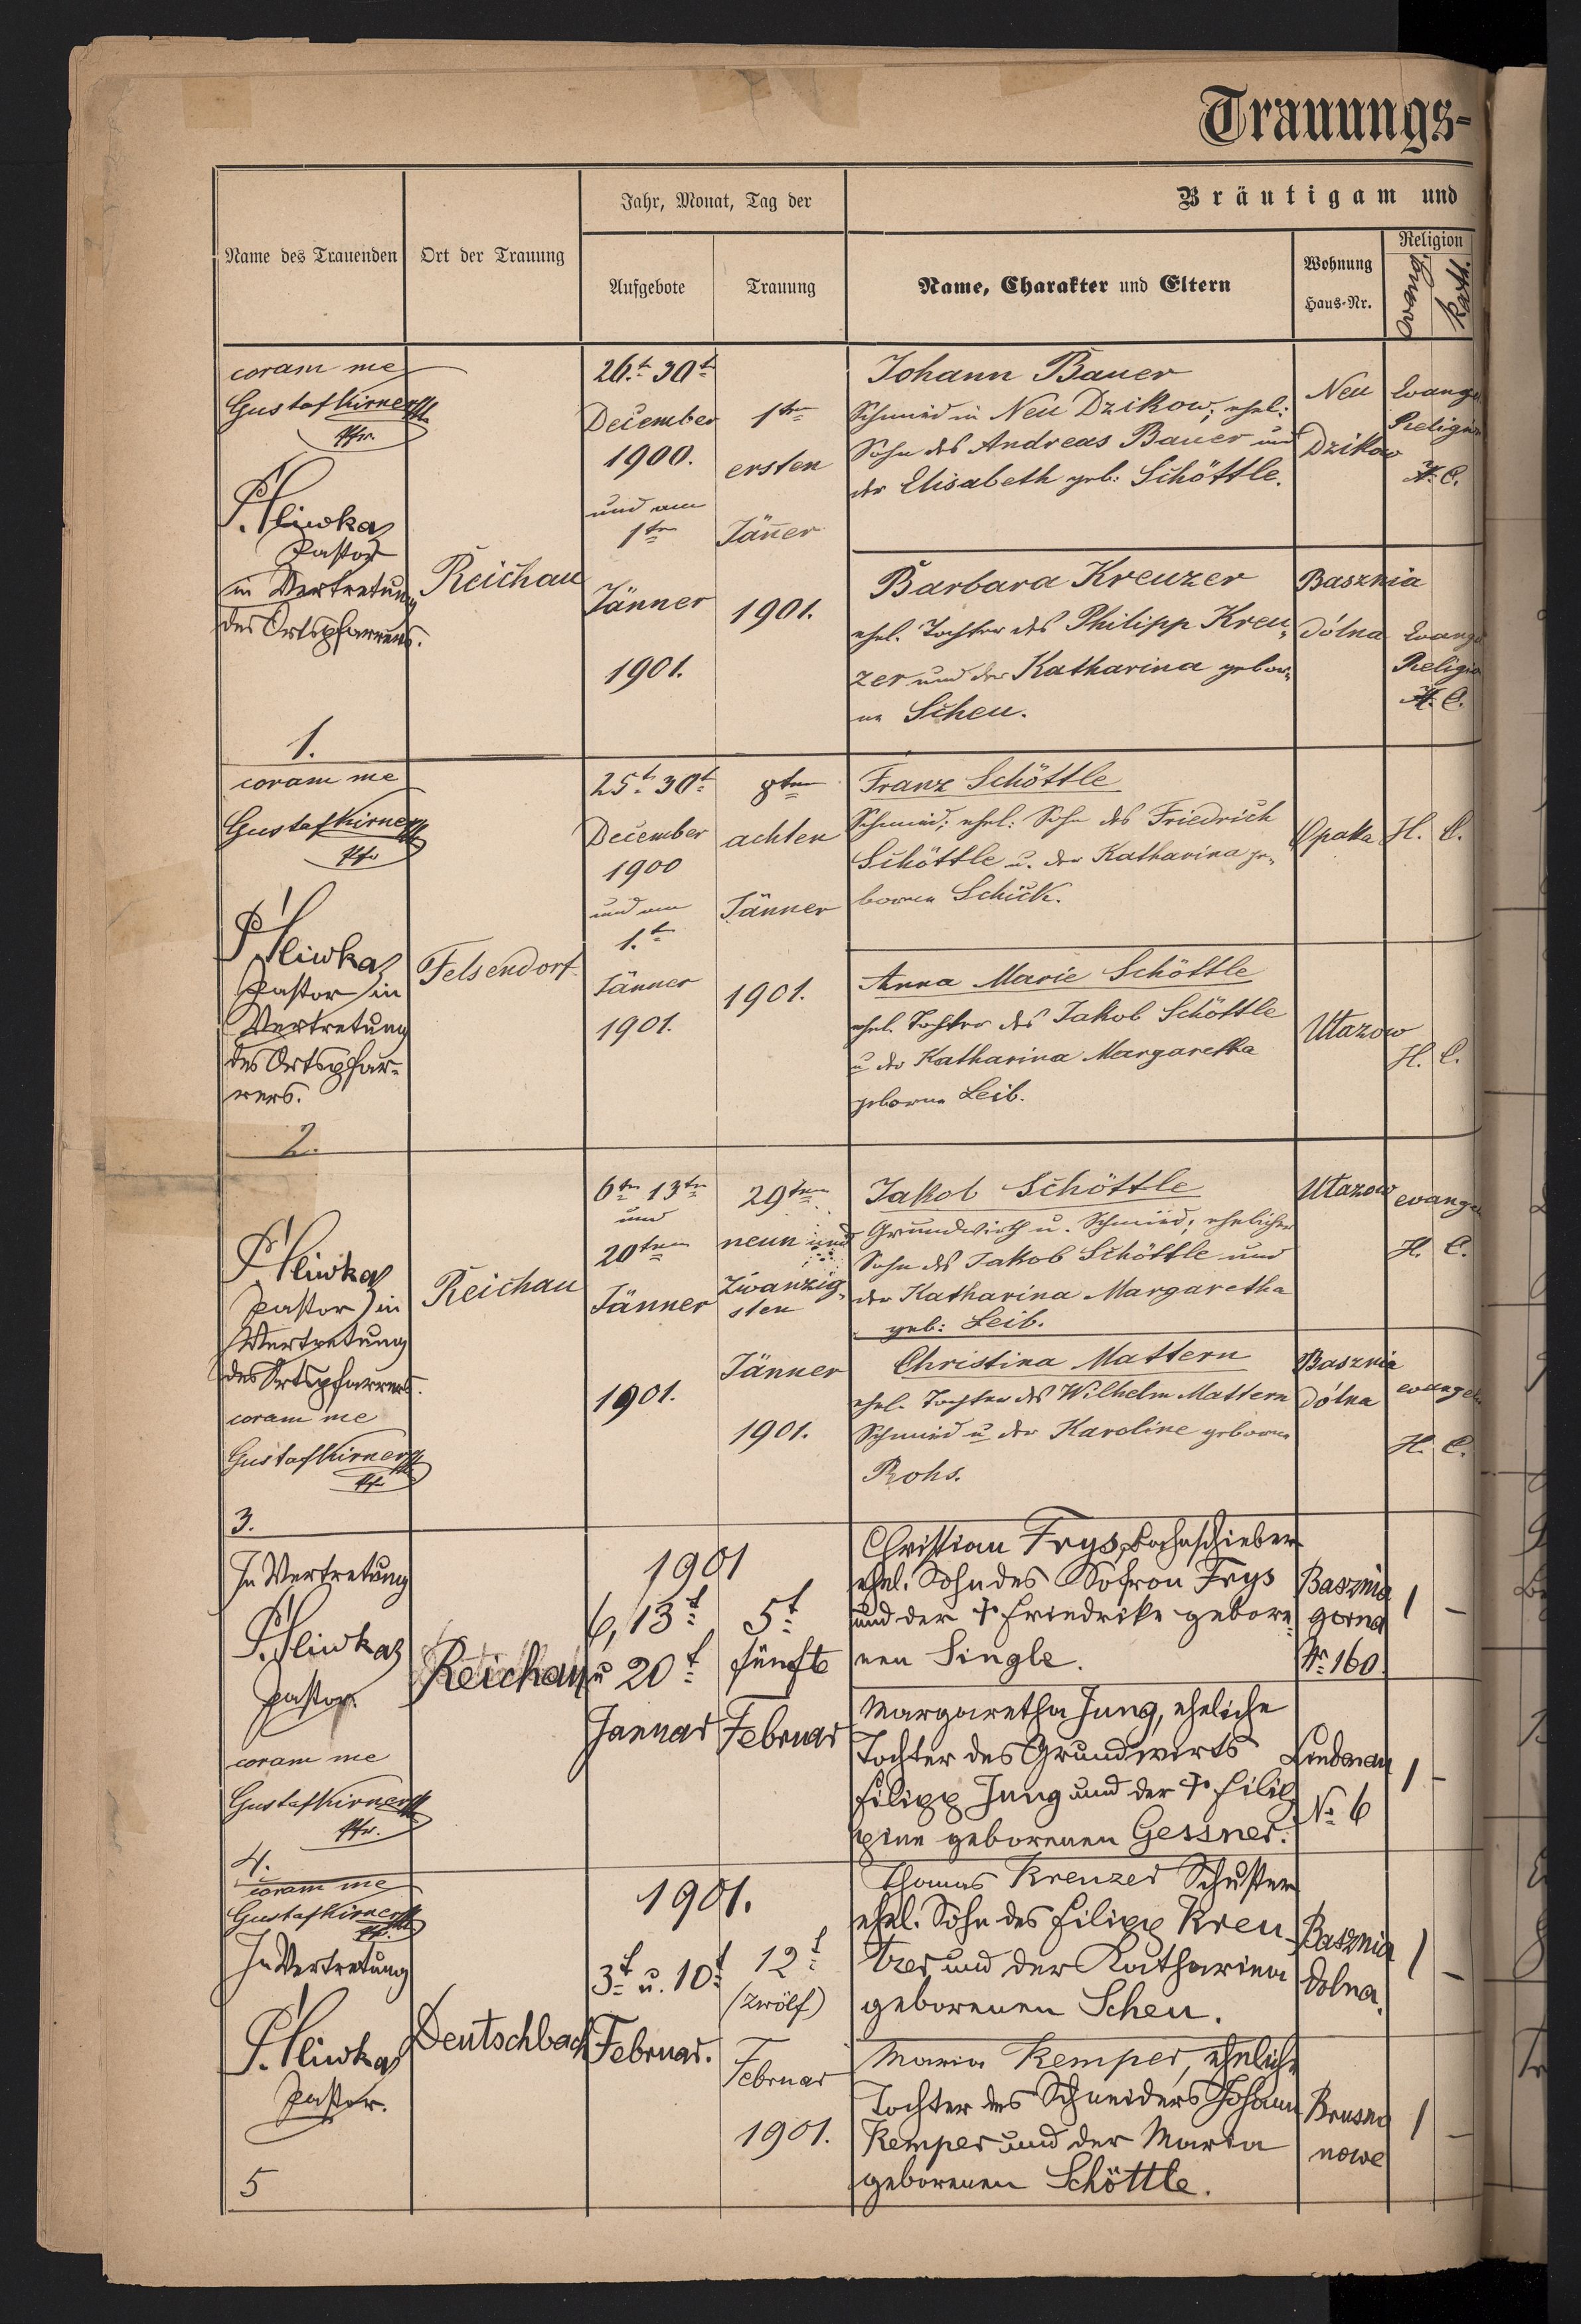 Trauungs-
Bräutigam und
Jahr, Monat, Tag der
Name des Trauenden
Ort der Trauung
Aufgebote
Trauung
Name, Charakter und Eltern
Wohnung
Haus-Nr.
Religion
evang.
kath.
coram me
Gustaf Kirner
Pfr.
P. Sliwka
Pastor
in Vertretung
des Ortspfarrers.
1.
Reichau
26.t 30t
December
1900.
und am
1ten
Jänner
1901.
1ten
ersten
Jäner
1901.
Johann Bauer
Schmied in Neu Dzikow; ehel:
Sohn des Andreas Bauer und
der Elisabeth geb: Schöttle.
Neu
Dzikow
Evang
Religion
H. C.
Barbara Kreuzer
ehel. Tochter des Philipp Kreu-
zer und der Katharina gebor-
ne Scheu.
Basznia
dólna
Evang
Religio
H. C.
coram me
Gustaf Kirner
Pfr
P. Sliwka
Pastor in
Vertretung
des Ortspfar-
rers.
2.
Felsendorf
25t 30t
December
1900
und am
1.t
Jänner
1901.
8ten
achten
Jänner
1901.
Franz Schöttle
Schmied; ehel: Sohn des Friedrich
Schöttle u. der Katharina ge-
borne Schück.
Opaka
H. C.
Anna Marie Schöttle
ehel. Tochter des Jakob Schöttle
u der Katharina Margaretha
geborne Leib.
Ułazow
H. C.
P. Sliwka
Pastor in
Vertretung
des Ortspfarrers.
coram me
Gustaf Kirner
Pfr
3.
Reichau
6ten 13ten
und
20ten
Jänner
1901.
29ten
neun und
Zwanzig-
sten
Jänner
1901.
Jakob Schöttle
Grundwirth u. Schmied; ehelicher
Sohn des Jakob Schöttle und
der Katharina Margaretha
geb: Leib.
Ułazow
evange
H. C.
Christina Mattern
ehel. Tochter des Wilhelm Mattern
Schmied u der Karoline geborne
Rohs.
Basznia
dólna
evangel
H. C.
In Vertretung
P. Sliwka
Pastor
coram me
Gustaf Kirner
Pfr.
4.
Reichau
1901
6, 13t
u 20t
Januar
5t
fünfte
Februar
Christian Frys, Bahnschieber
ehel. Sohn des Sofron Frys
und der † Friedrike gebore-
nen Single.
Basznia
gorna
Nr 160
1 -
Margaretha Jung, eheliche
Tochter des Grundwirts
Filipp Jung und der † Filip-
pine geborenen Gessner.
Lindenau
No 6
1 -
coram me
Gustaf Kirner
Pfr.
In Vertretung
P. Sliwka
Pastor.
5
Deutschbach
1901.
3t u. 10t
Februar.
12t
(zwölf)
Februar
1901.
Thomas Kreuzer Schuster
ehel. Sohn des Filipp Kreu-
tzer und der Katharina
geborenen Scheu.
Basznia
dolna.
1 -
Maria Kemper, eheliche
Tochter des Schneiders Johann
Kemper und der Maria
geborenen Schöttle.
Brusno
nowe
1 -